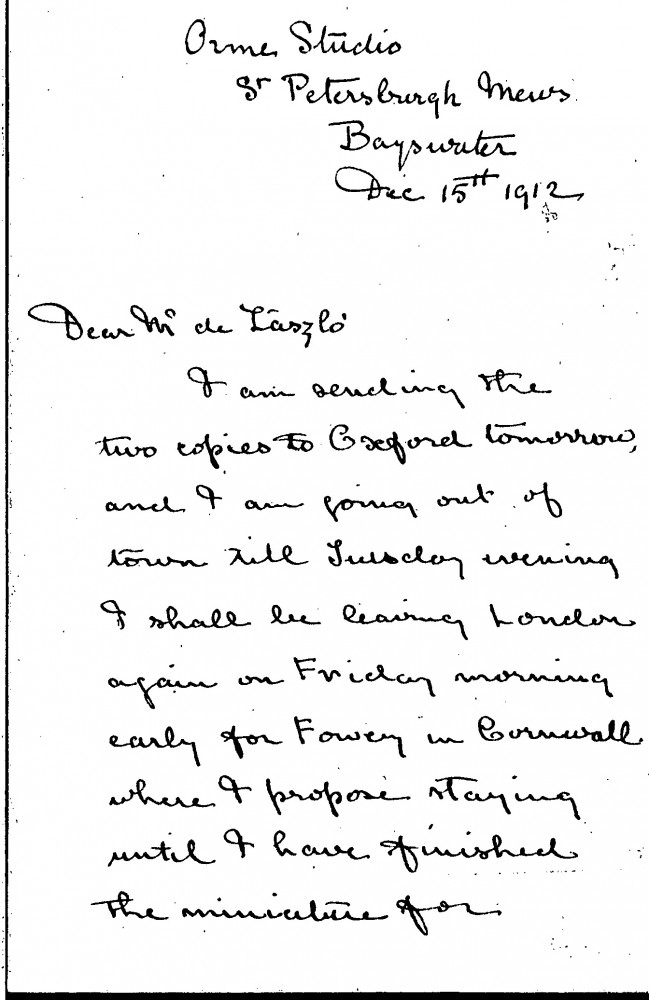 Orme Studio
St Petersburgh Mews
Bayswater
Dec 15th 1912
Dear Mr de László
I am sending the
two copies to Oxford tomorrow,
and I am going out of
town till Tuesday evening
I shall be leaving London
again on Friday morning
early for Fowey in Cornwall
where I propose staying
until I have finished
the miniature for